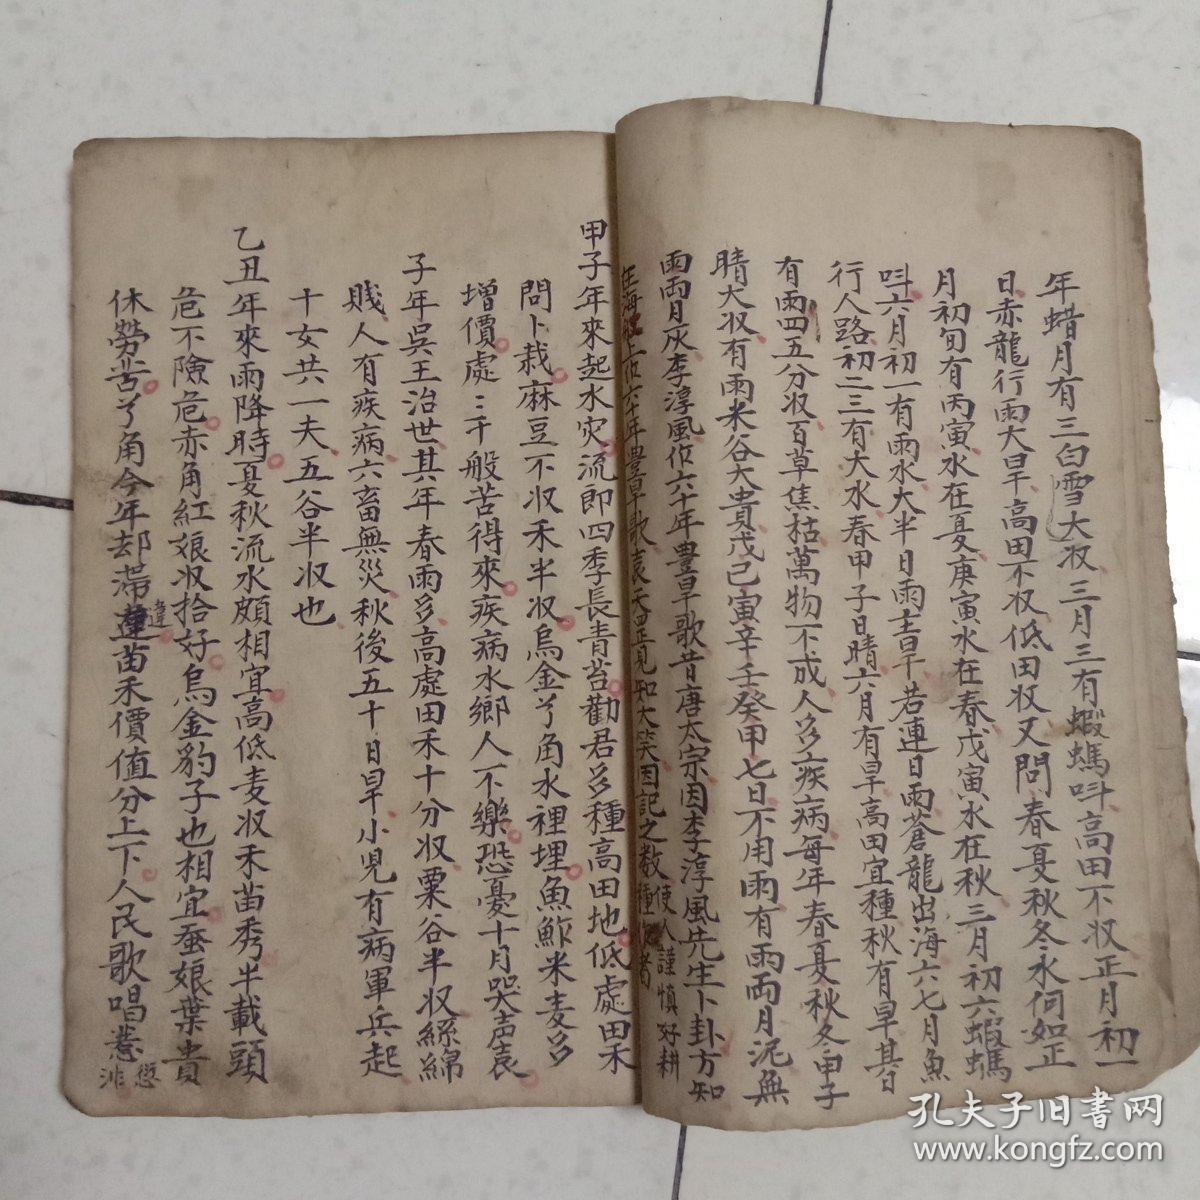 年蜡月有三白雪大収三月三有蝦蟆呌高田不収正月初一
日赤龍行雨大旱高田不収低田収又問春夏秋冬水何如正
月初旬有丙寅水在夏庚寅水在春戊寅水在秋三月初六蝦蟆
呌六月初一有雨水大半日雨主旱若連日雨蒼龍出海六七月魚
行人路初二三有大水春甲子日晴六月有旱高田宜種秋有旱其日
有雨四五分収百草焦枯萬物不成人多疾病每年春夏秋冬甲子
晴大収有雨米谷大貴戊己寅辛壬癸甲七日不用雨有雨両月泥無
雨両月灰李淳風作六十年豐旱歌昔唐太宗因李淳風先生卜卦方知
六十年豐旱歌袁天罡見知大笑因記之数使人謹慎好耕種
甲子年來起水災流即四季長青苔勸君多種高田地低處田禾
問卜栽麻豆不収禾半収烏金丫角水裡埋魚鮓米麦多
增價處〻千般苦得來疾病水鄉人不樂恐憂十月哭声哀
子年吳王治世其年春雨多高處田禾十分収粟谷半収絲綿
賎人有疾病六畜無災秋後五十日旱小児有病軍兵起
十女共一夫五谷半収也
乙丑年來雨降時夏秋流水頗相宜高低麦収禾苗秀半載頭
危不險危赤角紅娘収拾好烏金豹子也相宜蚕娘葉貴
休勞苦丫角今年却滞蓮苗禾價值分上下人民歌唱惹
孔夫子旧书网
www.kongfz.com